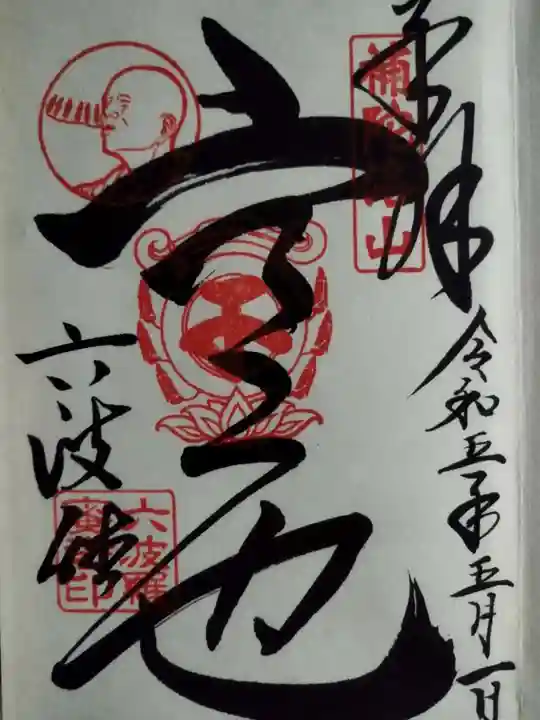 奉拝
補陀洛山
令和五年五月一日
空也
六波
六波羅蜜寺印